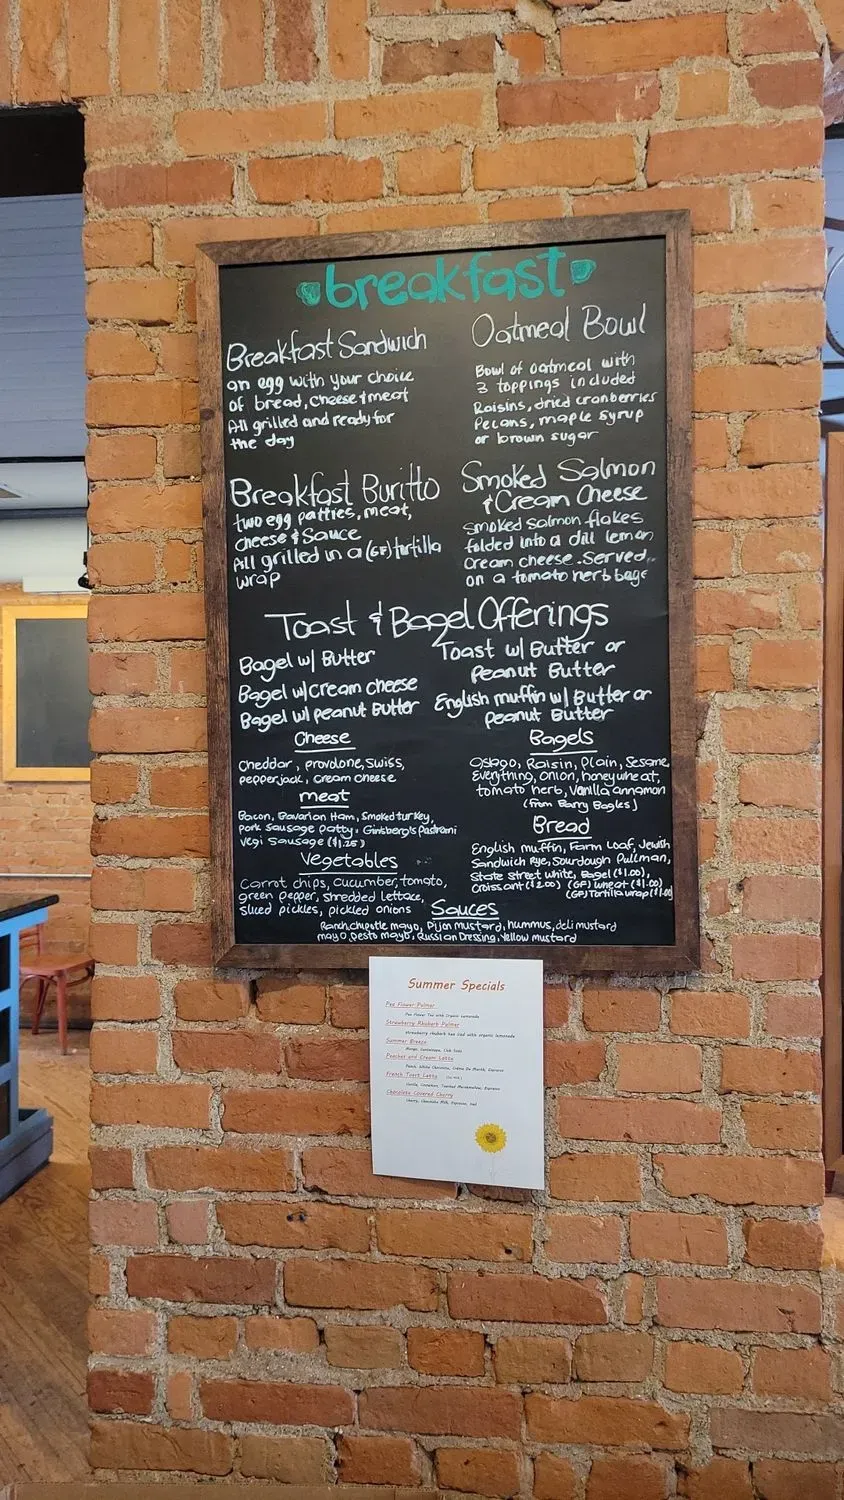 breakfast
Breakfast Sandwich
an egg with your choice
of bread, cheese & meat
All grilled and ready for
the day
Oatmeal Bowl
Bowl of oatmeal with
3 toppings included
Raisins, dried cranberries
Pecans, maple syrup
or brown sugar
Breakfast Buritto
two egg patties, meat,
cheese & Sauce
All grilled in a (GF) tortilla
wrap
Smoked Salmon
& Cream Cheese
Smoked salmon flakes
folded into a dill lemon
cream cheese. Served
on a tomato herb bage
Toast & Bagel Offerings
Bagel w/ Butter
Bagel w/cream cheese
Bagel w/ peanut Butter
Toast w/ Butter or
Peanut Butter
English muffin w/ Butter or
peanut Butter
Cheese
Cheddar, provolone, swiss,
pepperjack, cream cheese
meat
Bacon, Bavarian Ham, Smoked turkey,
Pork Sausage patty, Ginsberg's Pastrami
Vegi Sausage ($1.25)
Vegetables
Carrot chips, cucumber, tomato,
green pepper, shredded lettace,
sliced pickles, pickled onions
Bagels
Asiago, Raisin, Plain, Sesame,
Everything, onion, honeywheat,
tomato herb, Vanilla cinnamon
(from Barry Bagles)
Bread
English muffin, Farm Loaf, Jewish
Sandwich Rye, Sourdough Pullman,
State street white, Bagel ($1.00),
Croissant ($2.00) (GF) wheat ($1.00)
(GF) Tortilla wrap ($1.00)
Sauces
Ranch, chipotle mayo, Dijon mustard, hummus, deli mustard
mayo, pesto mayo, Russian Dressing, Yellow mustard
Summer Specials
Pea Flower Palmer
Pea Flower Tea with Organic Lemonade
Strawberry Rhubarb Palmer
strawberry rhubarb tea iced with organic lemonade
Summer Breeze
Mango, Cantaloupe, Club Soda
Peaches and Cream Latte
Peach, White Chocolate, Crème De Menthe, Espresso
French Toast Latte
Vanilla, Cinnamon, Toasted Marshmallow, Espresso
Chocolate Covered Cherry
Cherry, Chocolate Milk, Espresso, Iced